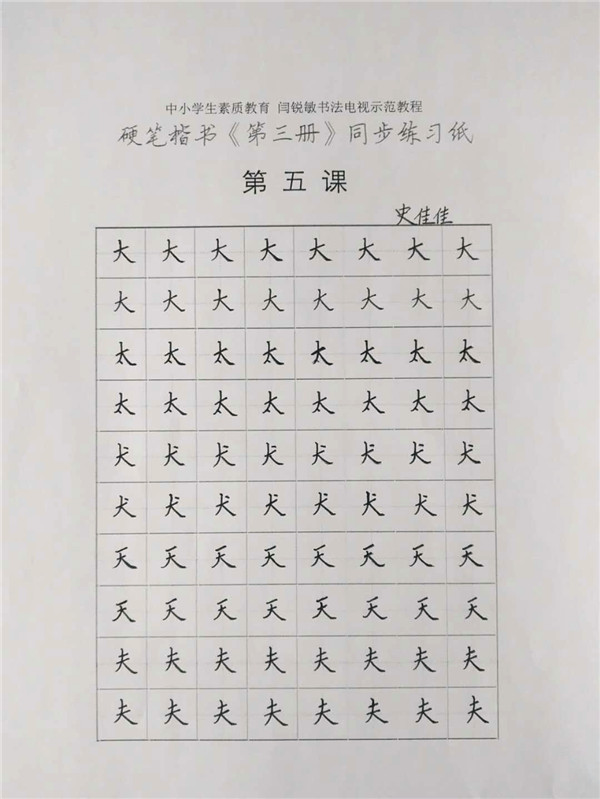 中小学生素质教育 闫锐敏书法电视示范教程
硬笔楷书《第三册》同步练习纸
第五课
史佳佳
大 大 大 大 大 大 大 大
大 大 大 大 大 大 大 大
太 太 太 太 太 太 太 太
太 太 太 太 太 太 太 太
犬 犬 犬 犬 犬 犬 犬 犬
犬 犬 犬 犬 犬 犬 犬 犬
天 天 天 天 天 天 天 天
天 天 天 天 天 天 天 天
夫 夫 夫 夫 夫 夫 夫 夫
夫 夫 夫 夫 夫 夫 夫 夫